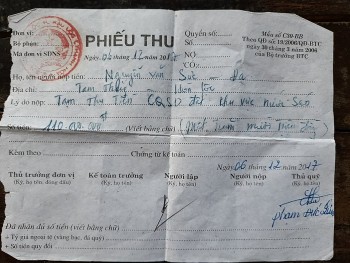 Đơn vị:
Bộ phận:
Mã đơn vị SDNS
PHIẾU THU
Ngày 06 tháng 12 năm 2017
Quyển số:
Số:
NỢ:
CÓ:
Mẫu số C30-BB
Theo QĐ số 19/2006/QĐ-BTC
ngày 30 tháng 3 năm 2006
của Bộ trưởng BTC
Họ, tên người nộp tiền: Nguyễn Văn
Địa chỉ:
Lý do nộp: Tạm Thu Tiền CQSD đất khu vực
Số tiền: 110.000.000đ (Viết bằng chữ) (Một trăm mười triệu đồng
Kèm theo: Chứng từ kế toán
Ngày 06 tháng 12 năm 2017
Thủ trưởng đơn vị Kế toán trưởng Người lập Người nộp Thủ quỹ
(Ký, họ tên, đóng dấu) (Ký, họ tên) (Ký, họ tên) (Ký, họ tên) (Ký, họ tên)
Đã nhận đủ số tiền (viết bằng chữ)
+ Tỷ giá ngoại tệ (vàng bạc, đá quý)
+ Số tiền quy đổi